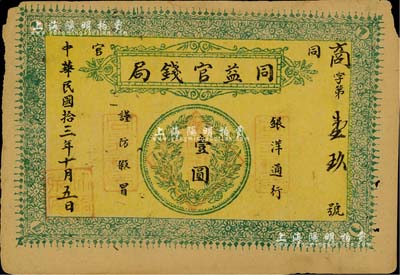 上海陽明拍賣
同 官
商字第壹玖號
同益官錢局
銀洋通行
壹圓
謹防假冒
中華民國拾三年十月五日
上海陽明拍賣
上海陽明拍賣